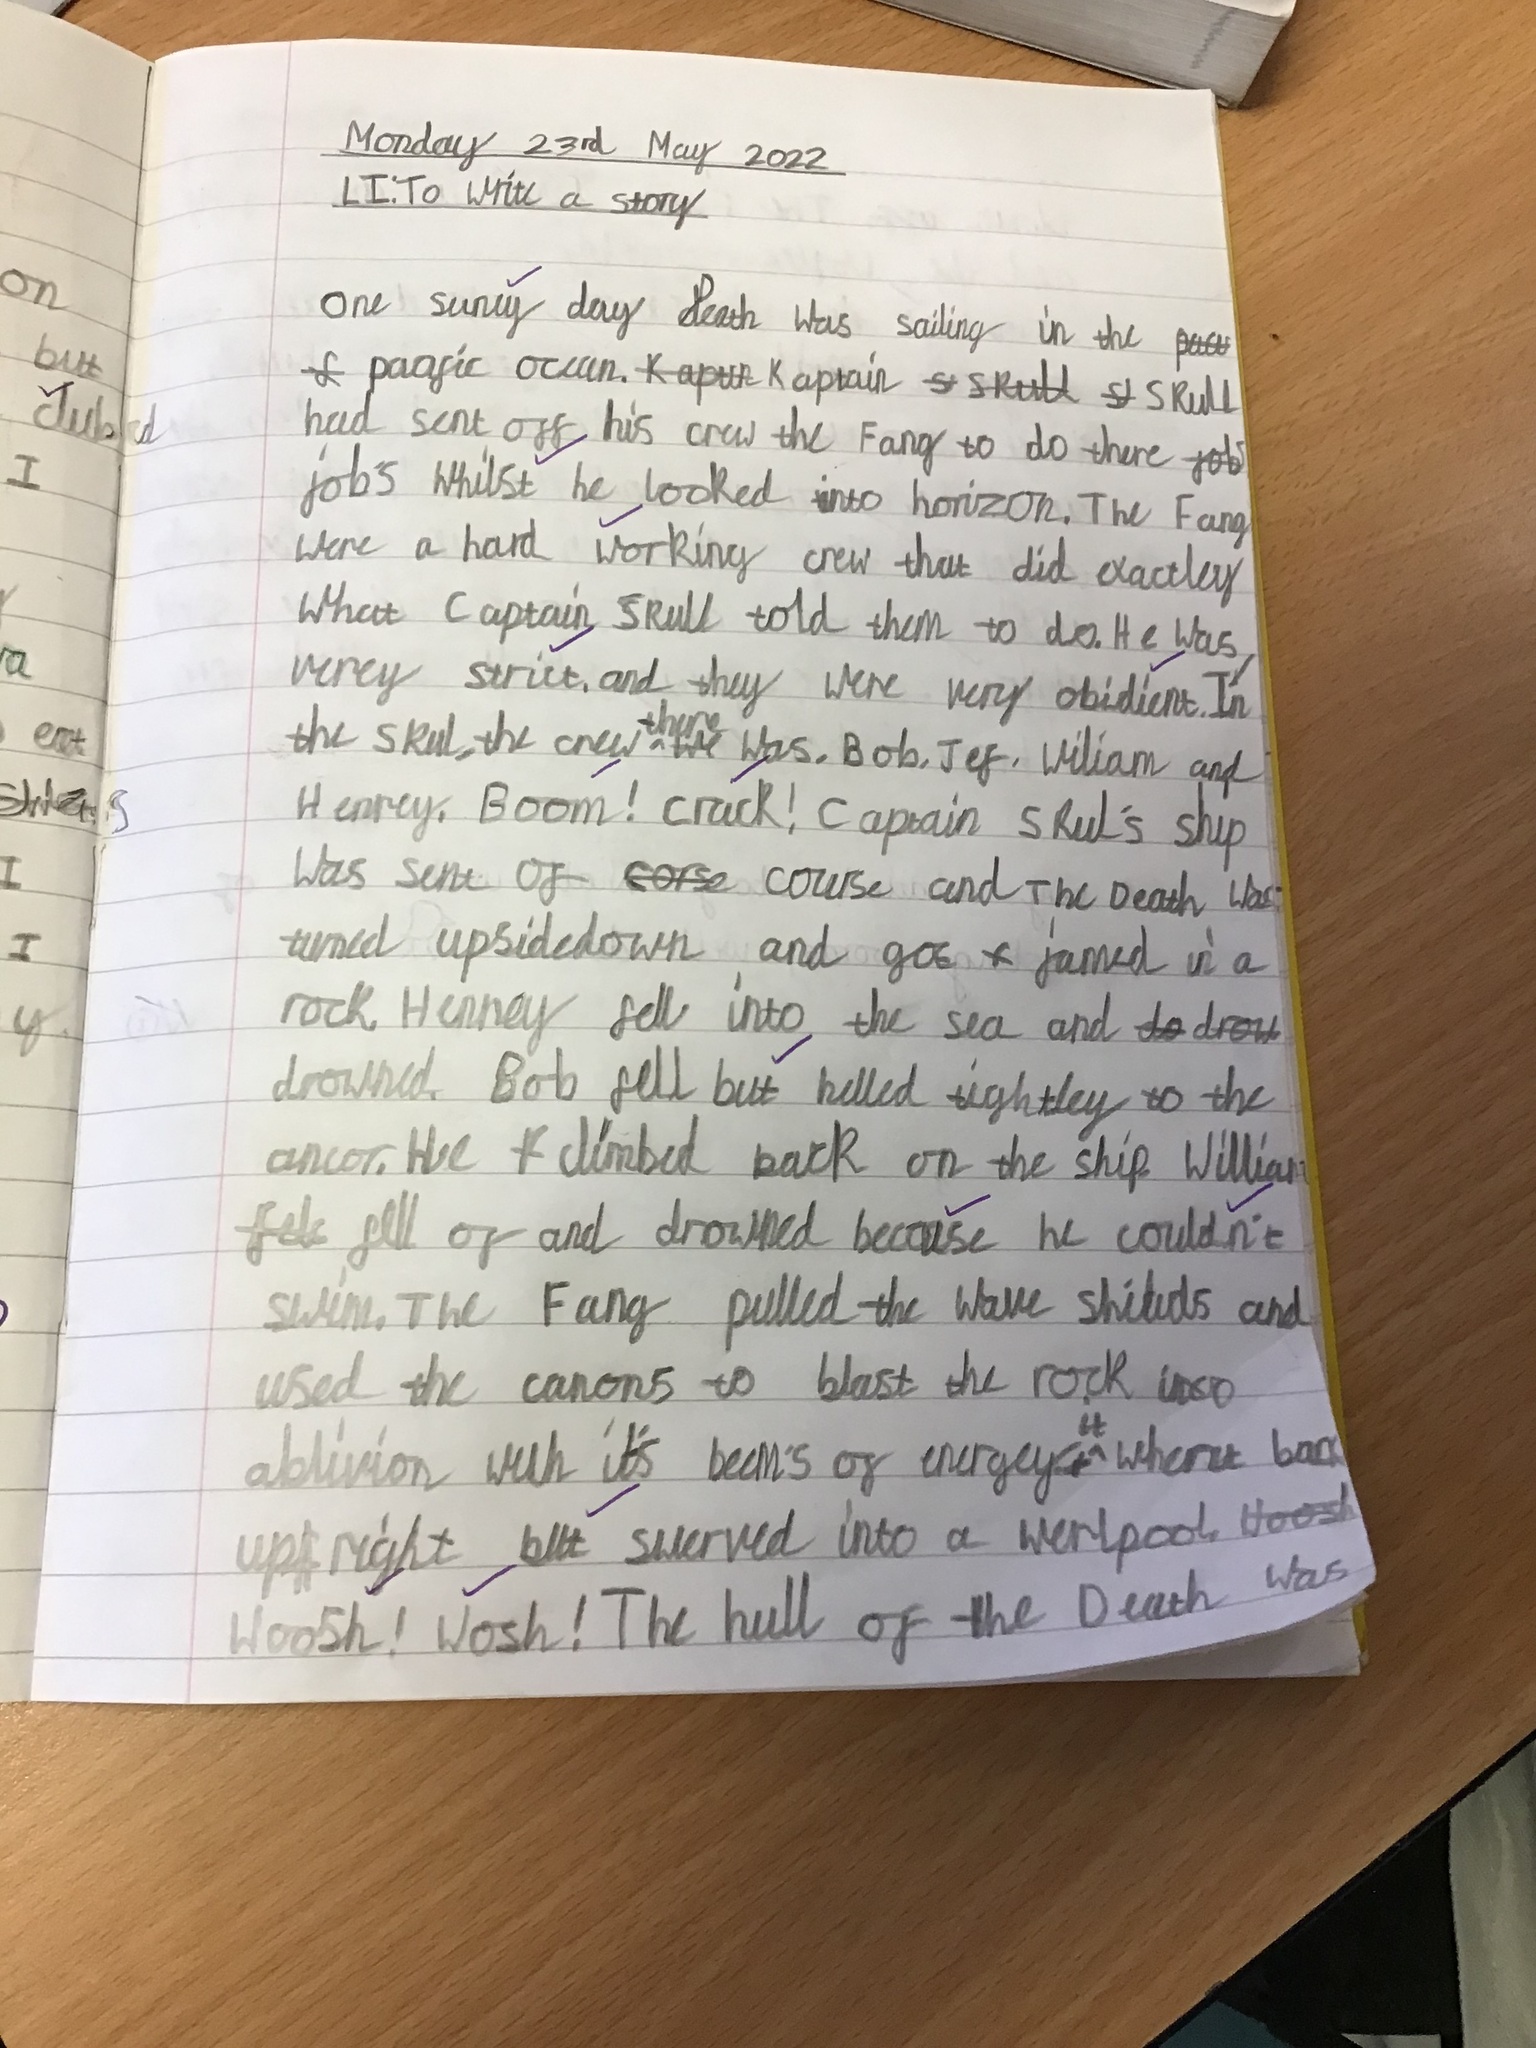 Monday 23rd May 2022
LI:To write a story
on
but
club
I
ra
eat
I
I
y.
One sunny day Death was sailing in the
pacific occan. Kaptain SKull
had sent off his crew the Fang to do there
job's whilst he looked into horizon. The Fang
were a hard working crew that did exactley
what Captain SKull told them to do. He was
verey strict. and they were very obidient. In
the SKul, the crew there was. Bob. Jef. Wiliam and
Henrey. Boom! Crack! Captain SKul's ship
was sent of course and The Death was
turned upsidedown and got jamed in a
rock. Henney fell into the sea and
drowned. Bob fell but helled tightley to the
ancor. He climbed back on the ship. William
fell of and drowned because he couldn't
swim. The Fang pulled the wave shileds and
used the canons to blast the rock into
ablivion with it's beem's of energey it whent back
upright but swerved into a werlpool.
Woosh! Wosh! The hull of the Death was